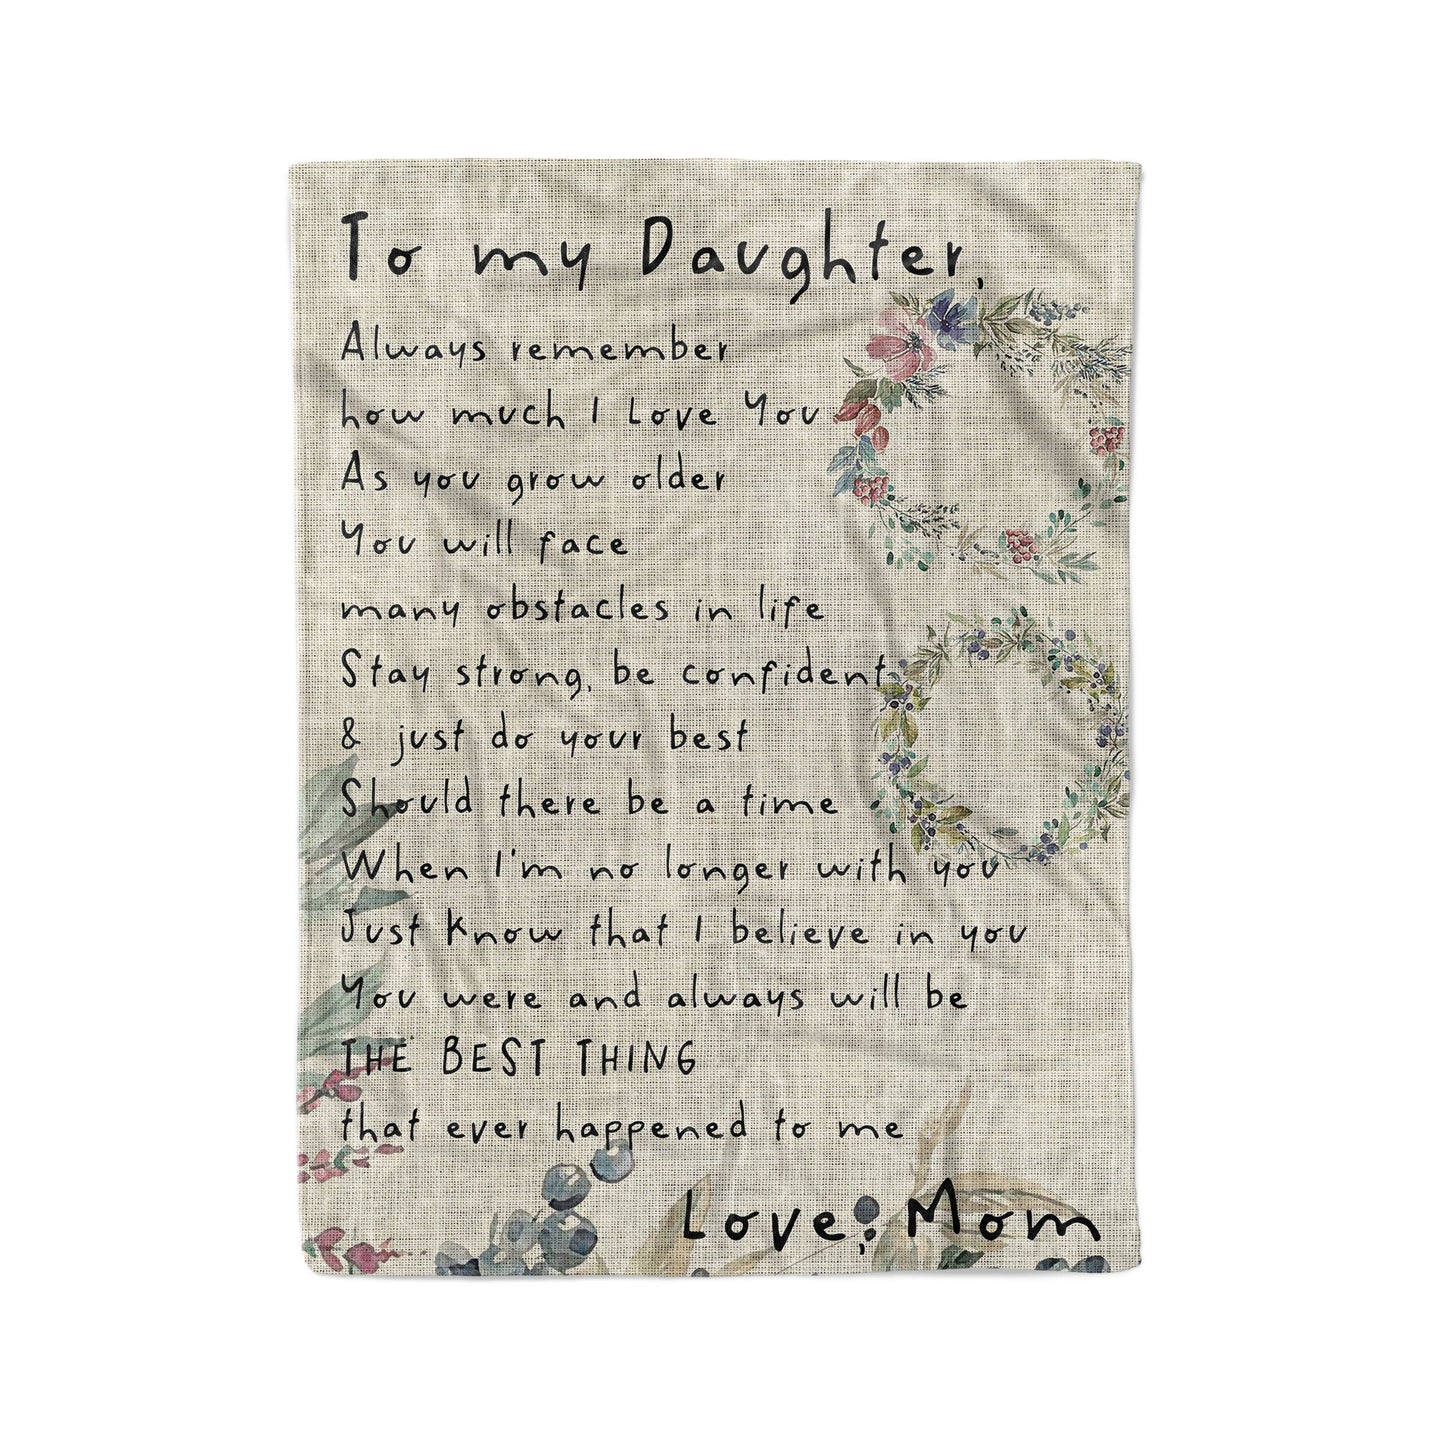 To my Daughter,
Always remember
how much I Love You
As you grow older
You will face
many obstacles in life
Stay strong, be confident
& just do your best
Should there be a time
When I'm no longer with you
Just know that I believe in you
You were and always will be
THE BEST THING
that ever happened to me
Love, Mom